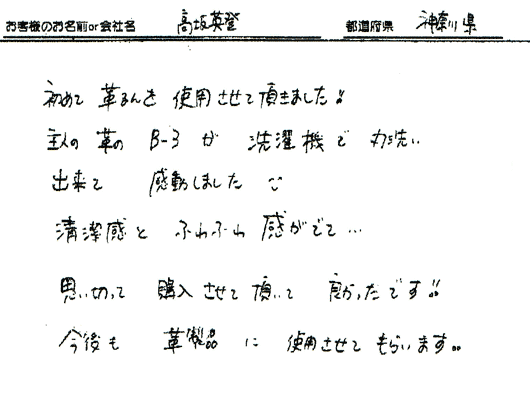 お客様のお名前or会社名 高坂英登 都道府県 神奈川県
初めて 革るんを 使用させて頂きました!!
主人の 革の B-3 が 洗濯機で 丸洗い
出来て 感動しました
清潔感と ふわふわ 感がでて…
思い切って 購入させて 頂いて 良かったです!!
今後も 革製品 に 使用させて もらいます。